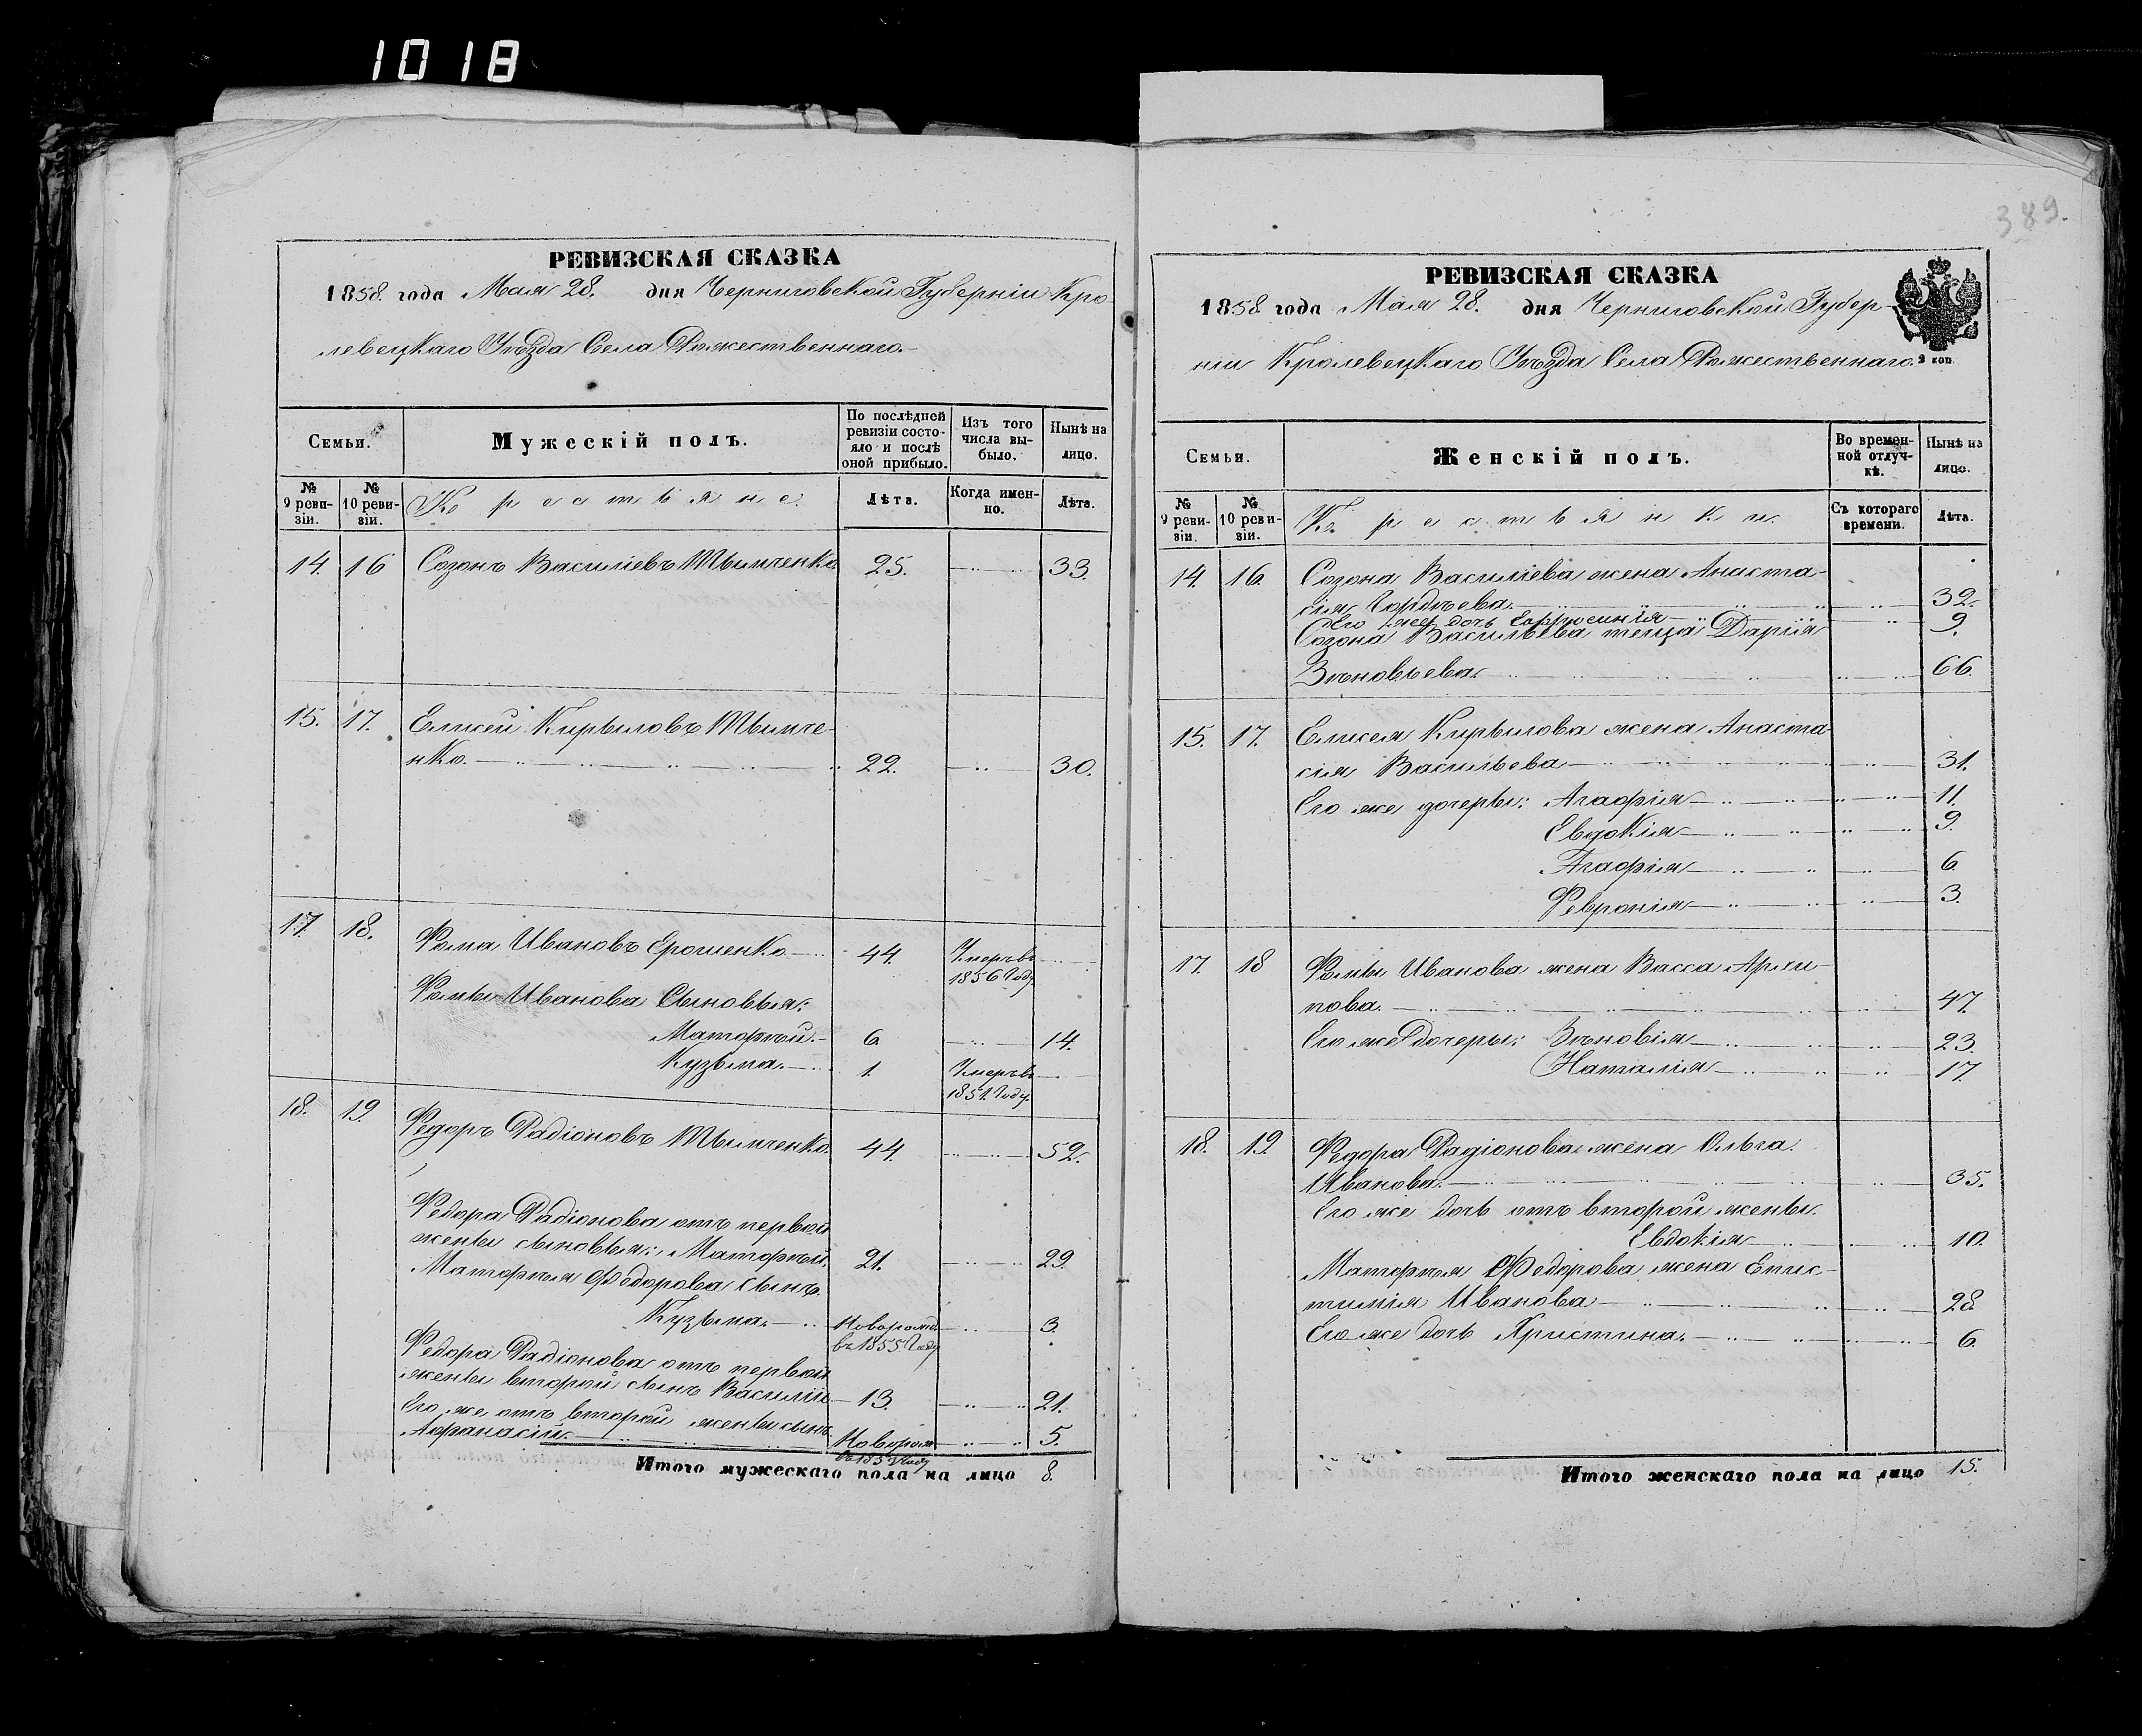 1018
389.
РЕВИЗСКАЯ СКАЗКА
1858 года Мая 28. дня Черниговской Губерніи Кро
левецкаго Уѣзда Села Рожественнаго.
Семьи.
Мужескій полъ.
По послѣдней ревизіи состояло и послѣ оной прибыло.
Изъ того числа выбыло.
Нынѣ на лицо.
№ 9 ревизіи.
№ 10 ревизіи.
Крестьяне.
Лѣта.
Когда именно.
Лѣта.
14. 16 Созонъ Василіевъ 25. 33.
15. 17. Елисей Кирыловъ
22. 30.
17. 18. Фома Ивановъ Ерошенко. 44. Умеръ въ
1856 Году.
Фомы Иванова Сыновья:
Матофѣй. 6. 14.
Кузьма. 1. Умеръ въ
1851 Году.
18. 19. Федоръ Радіоновъ 44. 52.
Федора Радіонова отъ первой
жены сыновья: Матофѣй. 21. 29.
Матофѣя Федорова сынъ
Кузьма. Новорожд. 3.
въ 1855 Году
Федора Радіонова отъ первой
жены второй сынъ Василій 13. 21.
Его же отъ второй жены сынъ
Афанасій. Новорож. 5.
Итого мужескаго пола на лицо 8.
РЕВИЗСКАЯ СКАЗКА
1858 года Мая 28. дня Черниговской Губер-
ніи Кролевецкаго Уѣзда Села Рожественнаго.
3 коп
Семьи.
Женскій полъ.
Во временной отлучкѣ.
Нынѣ на лицо.
№ 9 ревизіи.
№ 10 ревизіи.
Крестьянки.
Съ котораго времени.
Лѣта.
14. 16 Созона Василіева жена Анаста-
сія Гордѣева. 32.
Его же дочь Ефросинія 9.
Созона Васильева теща Дарія
Зѣновьева. 66.
15. 17. Елисея Кирылова жена Анаста-
сія Васильева 31.
Его же дочеры: Агафія 11.
Евдокія 9.
Агафія 6
Февронія 3.
17. 18 Фомы Иванова жена Васса Архи-
пова. 47.
Его же дочеры: Зѣновія 23.
Наталія 17.
18. 19. Федора Радіонова жена Ольга
Иванова. 35.
Его же дочь отъ второй жены
Евдокія 10.
Матофѣя Федорова жена Епис-
тимія Иванова 28
Его же дочь Христина. 6.
Итого женскаго пола на лицо 15.